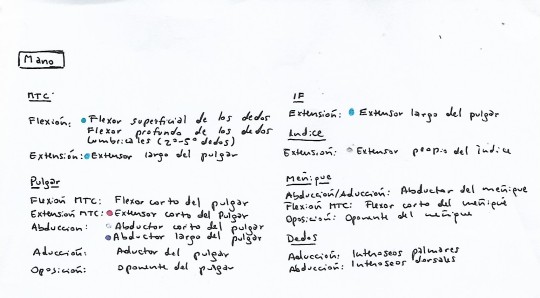 Mano
MTC:
Flexión: Flexor superficial de los dedos
Flexor profundo de los dedos
Lumbricales (2º-5º dedos)
Extensión: Extensor largo del pulgar
Pulgar
Flexión MTC: Flexor corto del pulgar
Extensión MTC: Extensor corto del Pulgar
Abduccion: Abductor corto del pulgar
Abductor largo del pulgar
Aducción: Aductor del pulgar
Oposición: Oponente del pulgar
IF
Extensión: Extensor largo del pulgar
Indice
Extensión: Extensor propio del indice
Meñique
Abducción/Aducción: Abductor del meñique
Flexión MTC: Flexor corto del meñique
Oposición: Oponente del meñique
Dedos
Aducción: Interoseos palmares
Abducción: Interoseos dorsales